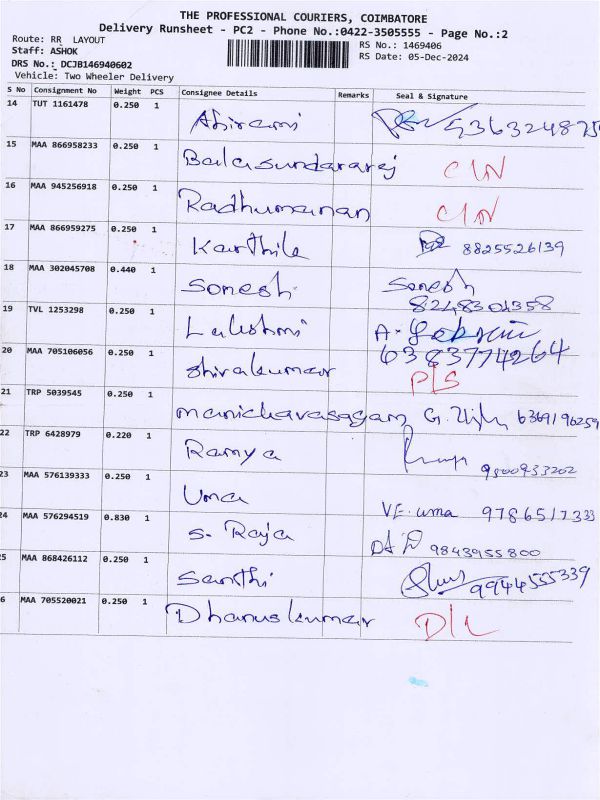 THE PROFESSIONAL COURIERS, COIMBATORE
Delivery Runsheet - PC2 - Phone No.:0422-3505555 - Page No.:2
Route: RR LAYOUT
RS No.: 1469406
Staff: ASHOK
RS Date: 05-Dec-2024
DRS No.: DCJB146940602
Vehicle: Two Wheeler Delivery
S No Consignment No Weight PCS Consignee Details Remarks Seal & Signature
14 TUT 1161478 0.250 1 Abirami
15 MAA 866958233 0.250 1 Balasundararaj C/N
16 MAA 945256918 0.250 1 Radhumanan C/N
17 MAA 866959275 0.250 1 Karthik 8825526139
18 MAA 302045708 0.440 1 Somesh Somesh
8248301358
19 TVL 1253298 0.250 1 Lakshmi A.
6383774264
20 MAA 705106056 0.250 1 Shivakumar P/S
21 TRP 5039545 0.250 1 Manichavasagam G. 6369196259
22 TRP 6428979 0.220 1 Ramya 9500933202
23 MAA 576139333 0.250 1 Uma VE. uma 9786517333
24 MAA 576294519 0.830 1 S. Raja 9843955800
5 MAA 868426112 0.250 1 Santhi 9944555339
6 MAA 705520021 0.250 1 Dhanuskumar D/L